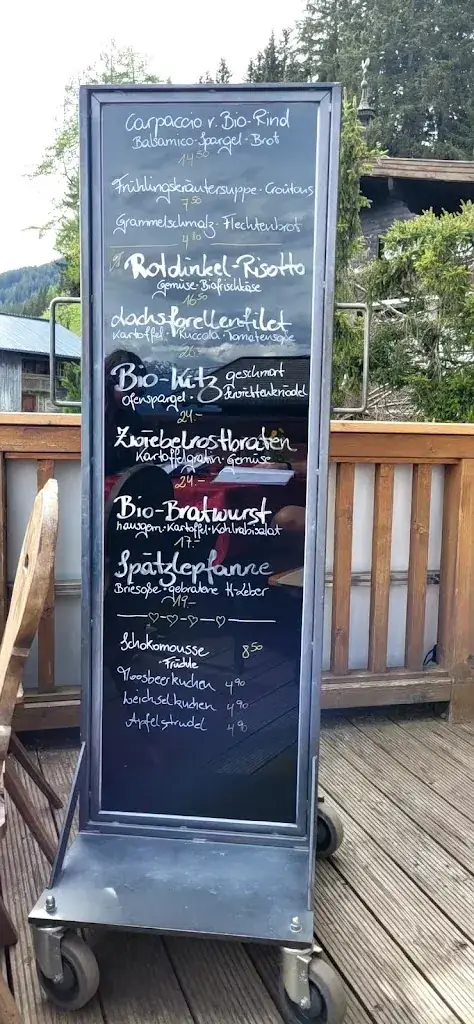 Carpaccio v. Bio-Rind
Balsamico-Spargel-Brot
14,50
Frühlingskräutersuppe - Croûtons
7,50
Grammelschmalz - Flechtenbrot
4,80
Rotdinkel-Risotto
Gemüse - Biofrischkäse
16,50
Lachsforellenfilet
Kartoffel - Ruccola - Tomatensoße
26.-
Bio-Kitz geschmort
Ofenspargel - Serviettenknödel
24.-
Zwiebelrostbraten
Kartoffelgratin - Gemüse
24.-
Bio-Bratwurst
hausgem. Kartoffel-Kohlrabisalat
17.-
Spätzlepfanne
gebratene
19.-
Schokomousse 8,50
- Früchte
Moosbeerkuchen 4,90
Weichselkuchen 4,90
Apfelstrudel 4,90